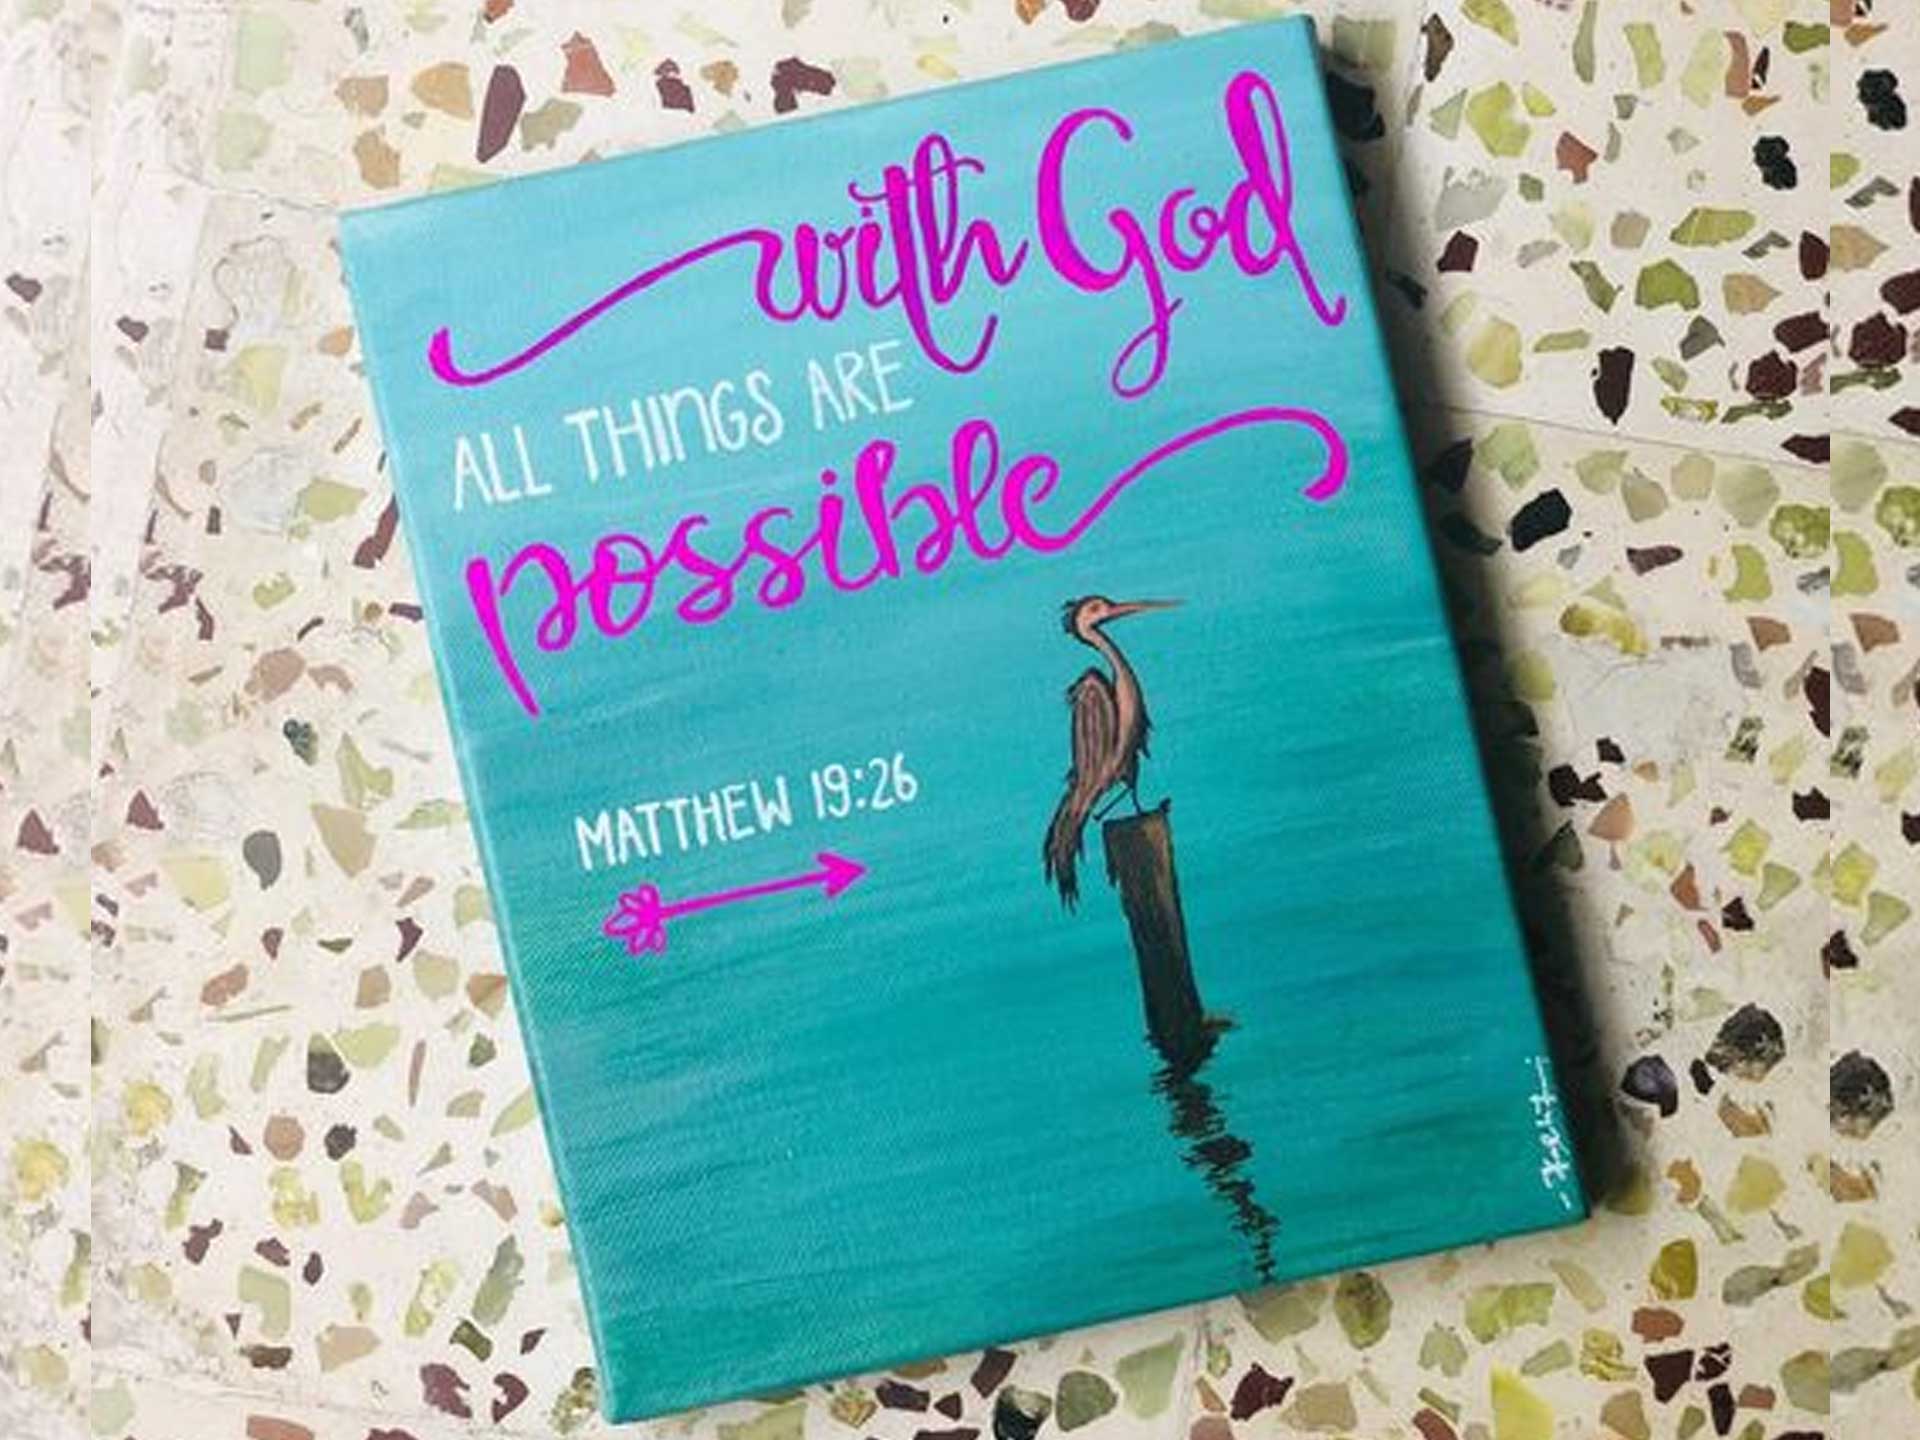 with God
ALL THINGS ARE
possible
MATTHEW 19:26